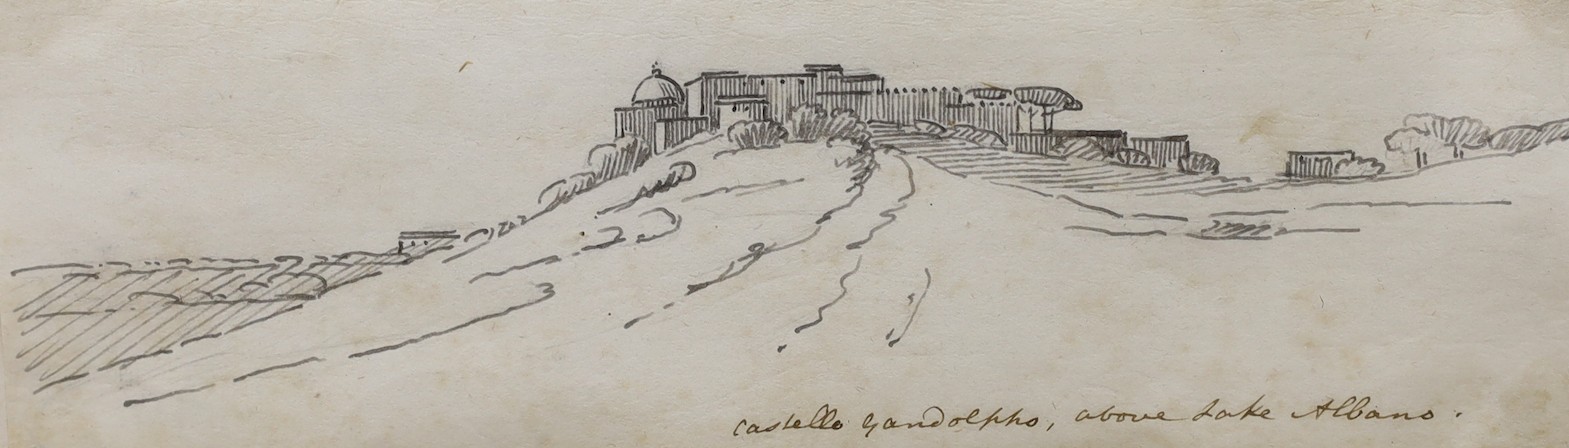 Castello Gandolpho, above Lake Albano.